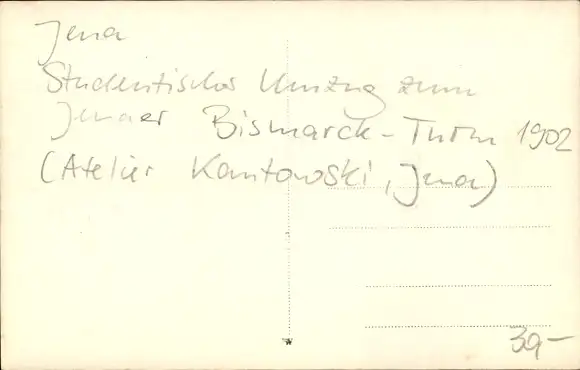 Jena
Studentischer Umzug zum
Jenaer Bismarck-Turm 1902
(Atelier Kantowski, Jena)
39-